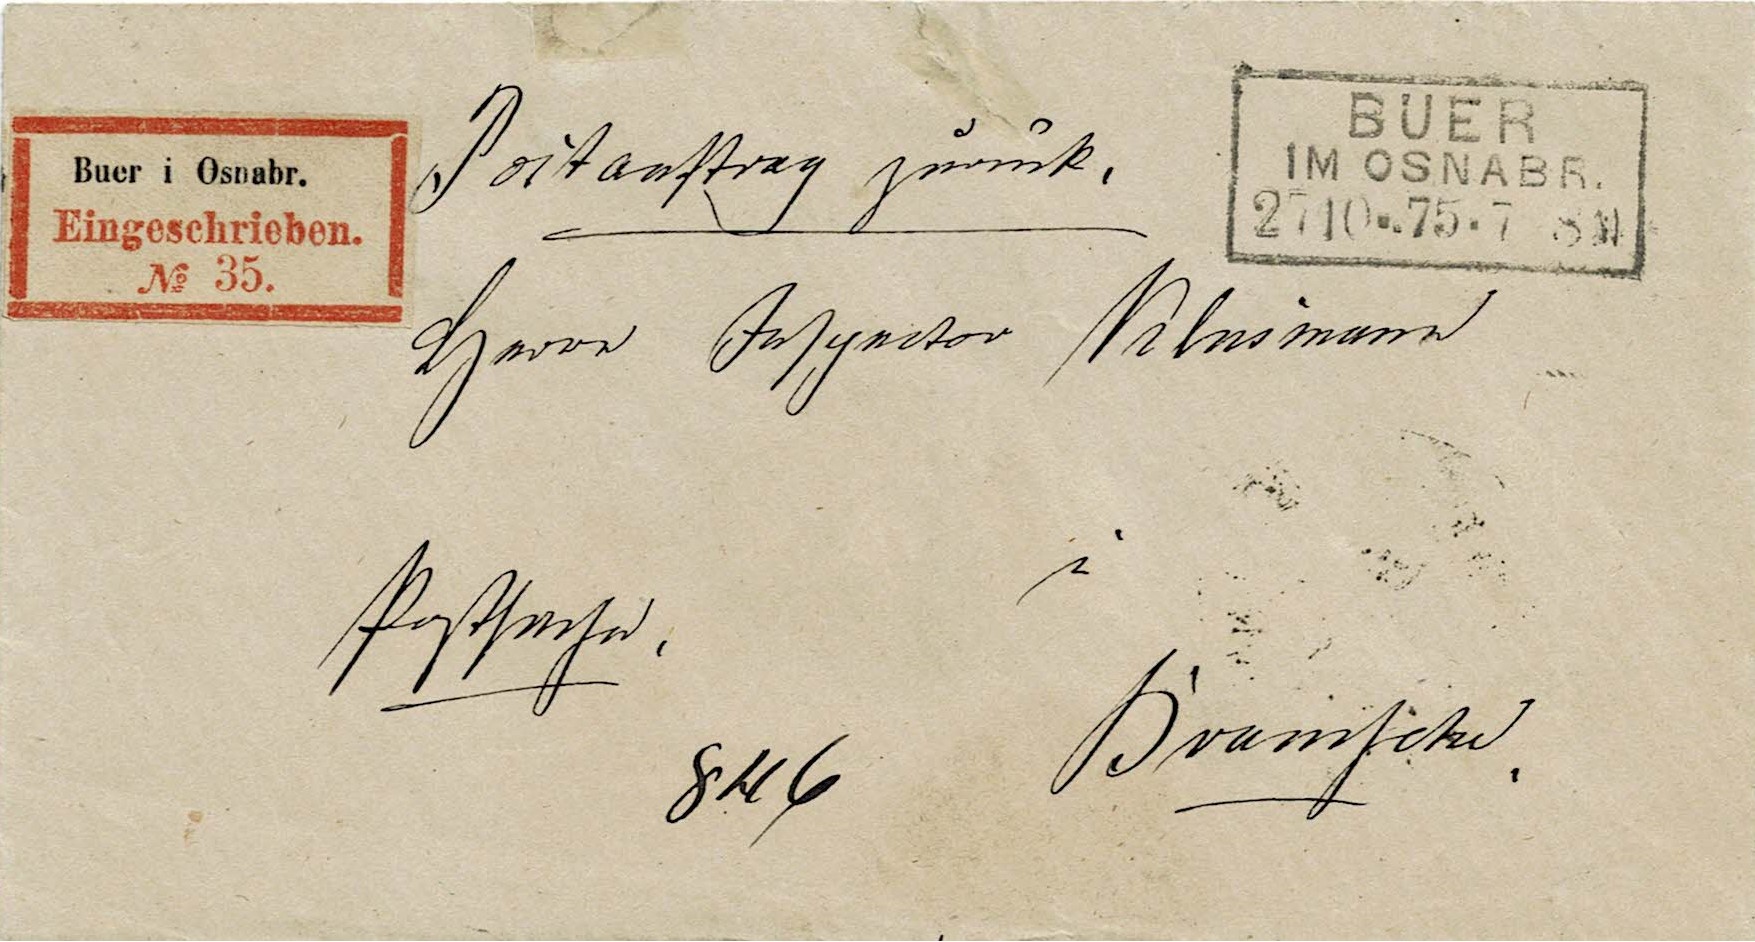 Buer i Osnabr.
Eingeschrieben.
№ 35.
BUER
IM OSNABR.
27 10 .. 75 . 7 8 N
Postauftrag zurück.
Herrn Inspector
Postsache.
i
Bramsche.
846